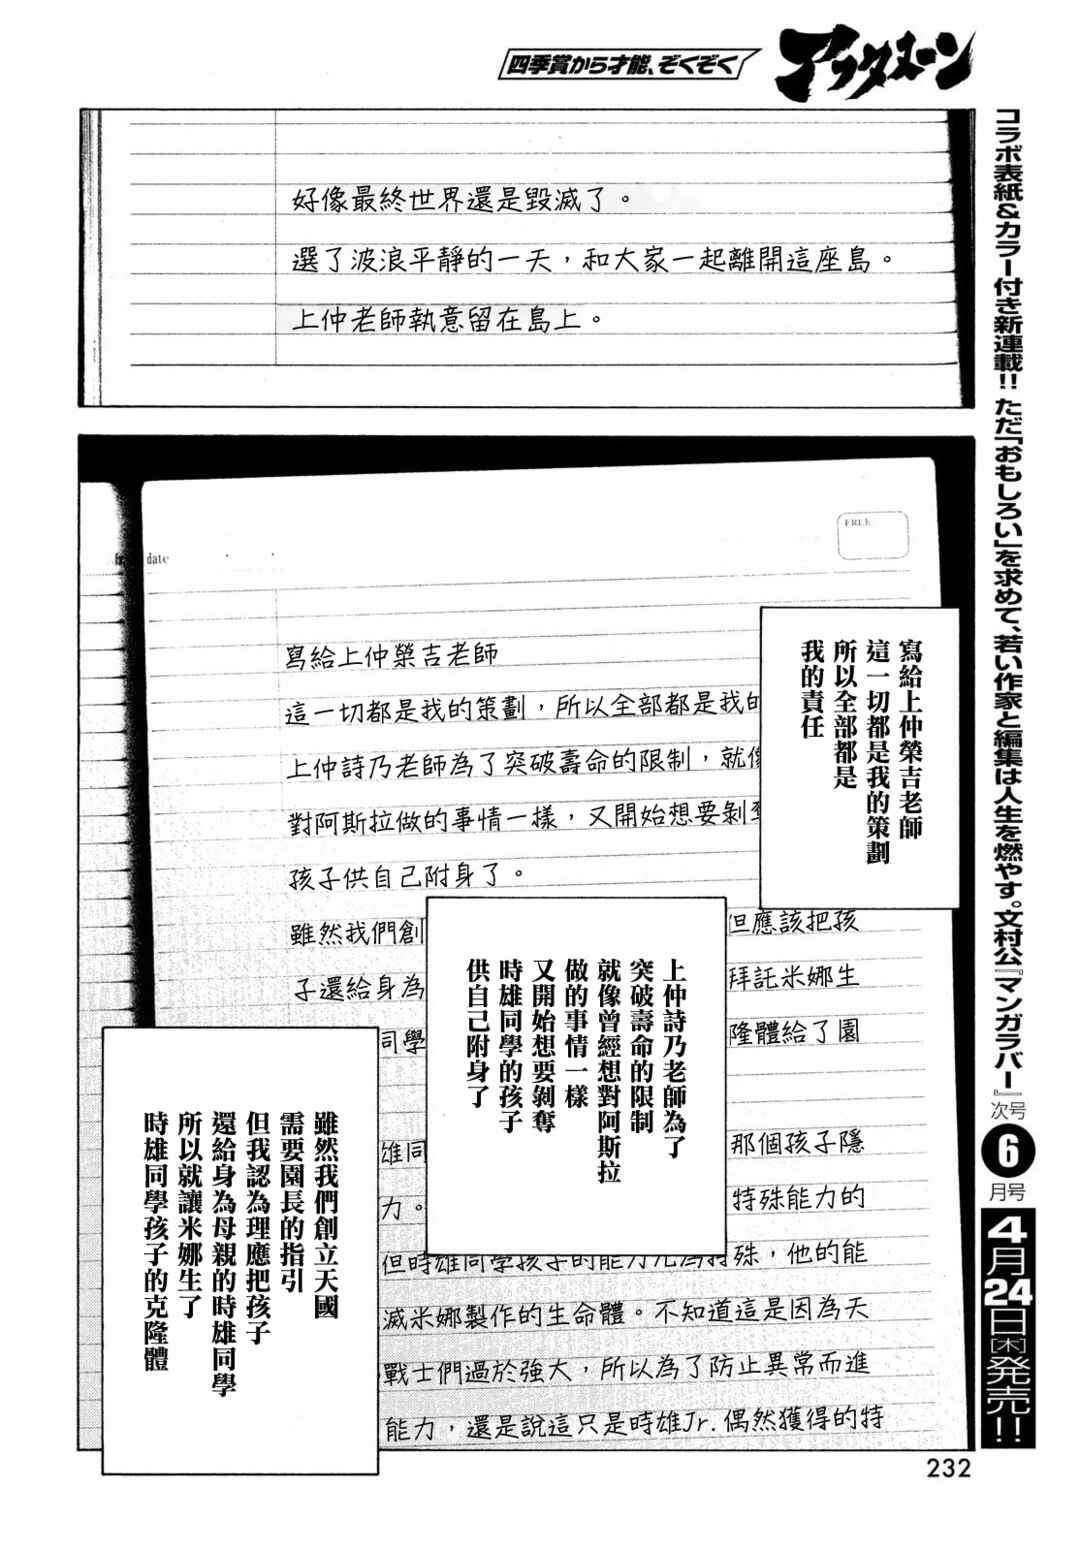 四季賞から才能、ぞくぞく
アフタヌーン
コラボ表紙&カラー付き新連載!! ただ「おもしろい」を求めて、若い作家と編集は人生を燃やす。文村公『マンガラバー』次号6月号4月24日[木]発売!!
好像最終世界還是毀滅了。
選了波浪平靜的一天，和大家一起離開這座島。
上仲老師執意留在島上。
date
FREE
寫給上仲榮吉老師
這一切都是我的策劃，所以全部都是我的
上仲詩乃老師為了突破壽命的限制，就像
對阿斯拉做的事情一樣，又開始想要剝奪
孩子供自己附身了。
雖然我們創
但應該把孩
子還給身為
拜託米娜生
同學
隆體給了園
雄同
那個孩子隱
力。
特殊能力的
但時雄同學孩子的能力尤為特殊，他的能
滅米娜製作的生命體。不知道這是因為天
戰士們過於強大，所以為了防止異常而進
能力，還是說這只是時雄Jr.偶然獲得的特
寫給上仲榮吉老師
這一切都是我的策劃
所以全部都是
我的責任
上仲詩乃老師為了
突破壽命的限制
就像曾經想對阿斯拉
做的事情一樣
又開始想要剝奪
時雄同學的孩子
供自己附身了
雖然我們創立天國
需要園長的指引
但我認為理應把孩子
還給身為母親的時雄同學
所以就讓米娜生了
時雄同學孩子的克隆體
232